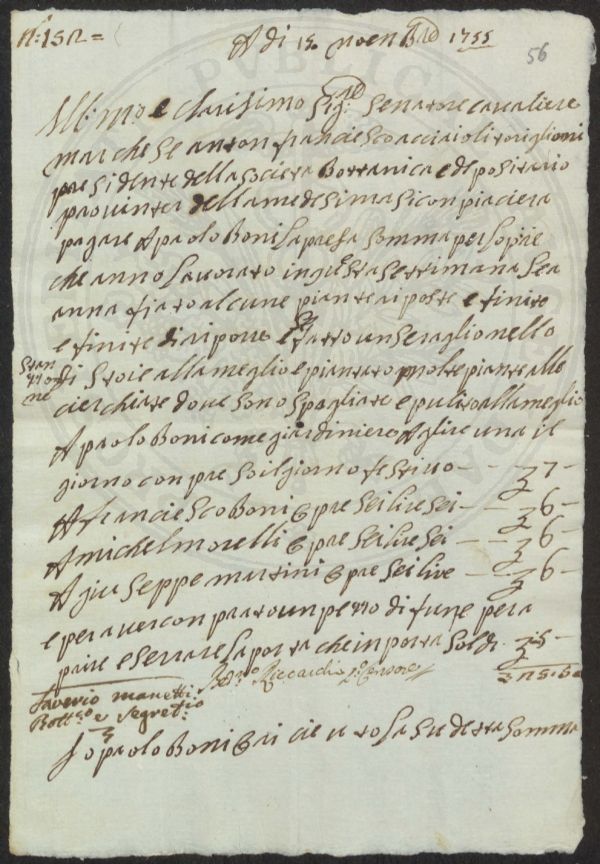 N: 152 =
A di 15 noenbre 1755
56
Ill:mo e Clarisimo Sig:re Senatore Cavaliere
marchese anton franciesco acciaioli toriglioni
presidente della Societa Bottanica e depositario
provinter della medesima si conpiaciera
pagare A paolo Boni la presa somma per lopre
che anno lavorato in questa settimana sea
anna fiato alcune piante riposte e finite
e finite di riporre e fatto un seraglionello
Stan
zzone
di stoie alla meglio e piantato molte piante alle
cierchiate doue sono spogliate e pulito alla meglio
A paolo Boni come giardiniere A lire una il
giorno conpreso il giorno festiuo — — 7 —
A franciesco Boni 6 pre sei lire sei — — 6 —
A michel morelli 6 pre sei lire sei — — 6 —
A giuseppe martini 6 pre sei lire — — 6 —
e per auer conprato un pezzo di fune per a
prire e serrare la porta che inporta soldi 5 —
25.5.
Saverio Manetti
Bott:co e Segret:rio
Riccardi Censore
Io paolo Boni 6 ri cieuto la sudetta somma